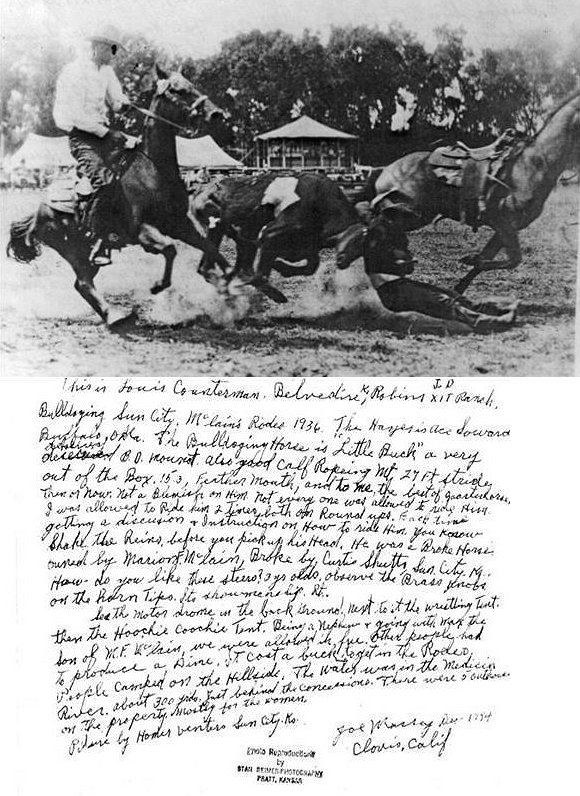 This is Louis Counterman. Belvedire, K, Robins J.D XIT Ranch,
Bulldoging Sun City, McLain's Rodeo 1936. The Hayes is ace Soward
Buffalo, Okla. The Bulldoging Horse is "Little Buck" a very
B.D. mount. also good Calf Ropeing Mt, 27 Ft stride
out of the Box. 15.3, Feather Mouth, and to me, the best of quarterhorse,
Then or Now. Not a Blemish on Him. Not every one was allowed to ride Him.
I was allowed to Ride him 2 times, both on Round ups. Each time
getting a discusion & Instruction on How to ride Him. You Know
Shake the Reins, before you pick up his Head. He was a Broke Horse.
owned by Marion F. McLain, Broke by Curtis Shutts, Sun City, Ks.
How do you like those steers? 3 yr olds, observe the Brass Knobs
on the Horn Tips. Its showmanship. Et.
See the Motor drome in the back Ground, Next to it the wrestling Tent.
than the Hoochie Coochie Tent. Being a Nephew & going with Max the
Son of M.F. McLain, we were allowed in, free. Other people had
to produce a Dime. It cost a buck to get in the Rodeo,
People Camped on the Hillside. The water was in the Medicin
River, about 300 yrds. Just behind the concessions. There were 5
on the property, Mostly for the women.
Picture by Homer Venters Sun City. Ks.
Joe Massey Dec 1994
Clovis, Calif
Photo Reproductions
by
STAN REIMER-PHOTOGRAPHY
PRATT, KANSAS